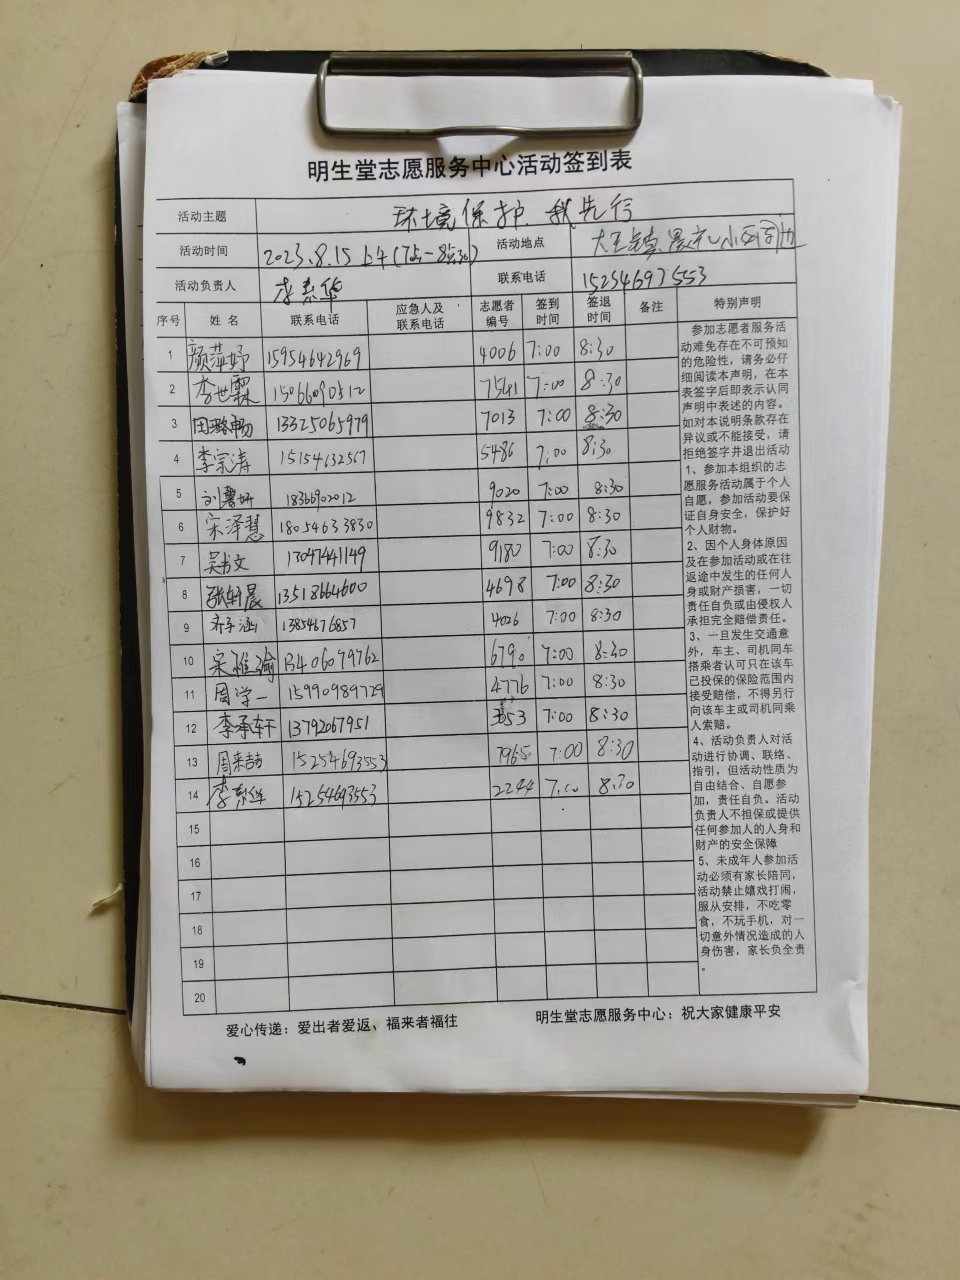 明生堂志愿服务中心活动签到表
活动主题 环境保护 我先行
活动时间 2023.8.15 上午(7点-8点30) 活动地点 大王镇 小区周边
活动负责人 李素华 联系电话 15254693553
序号 姓名 联系电话 应急人及联系电话 志愿者编号 签到时间 签退时间 备注 特别声明
1 颜萍妤 15954642969 4006 7:00 8:30
2 李世霖 15066090312 7541 7:00 8:30
3 田璐畅 13325065979 7013 7:00 8:30
4 李宗涛 15154632567 5486 7:00 8:30
5 刘馨妍 18366902012 9020 7:00 8:30
6 宋泽慧 18054633830 9832 7:00 8:30
7 吴书文 13047441149 9180 7:00 8:30
8 张轩晨 13518664600 4698 7:00 8:30
9 齐子涵 13854676857 4026 7:00 8:30
10 宋雅瑜 13406079762 6790 7:00 8:30
11 周学一 15990989729 4776 7:00 8:30
12 李承轩 13792067951 7:00 8:30
13 周来喆 15254693553 7965 7:00 8:30
14 李素华 15254693553 2244 7:00 8:30
15
16
17
18
19
20
参加志愿者服务活
动难免存在不可预知
的危险性，请务必仔
细阅读本声明，在本
表签字后即表示认同
声明中表述的内容。
如对本说明条款存在
异议或不能接受，请
拒绝签字并退出活动
1、参加本组织的志
愿服务活动属于个人
自愿，参加活动要保
证自身安全，保护好
个人财物。
2、因个人身体原因
及在参加活动或在往
返途中发生的任何人
身或财产损害，一切
责任自负或由侵权人
承担完全赔偿责任。
3、一旦发生交通意
外，车主、司机同车
搭乘者认可只在该车
已投保的保险范围内
接受赔偿，不得另行
向该车主或司机同乘
人索赔。
4、活动负责人对活
动进行协调、联络、
指引，但活动性质为
自由结合、自愿参
加，责任自负。活动
负责人不担保或提供
任何参加人的人身和
财产的安全保障
5、未成年人参加活
动必须有家长陪同，
活动禁止嬉戏打闹，
服从安排，不吃零
食，不玩手机，对一
切意外情况造成的人
身伤害，家长负全责
。
爱心传递：爱出者爱返、福来者福往 明生堂志愿服务中心：祝大家健康平安